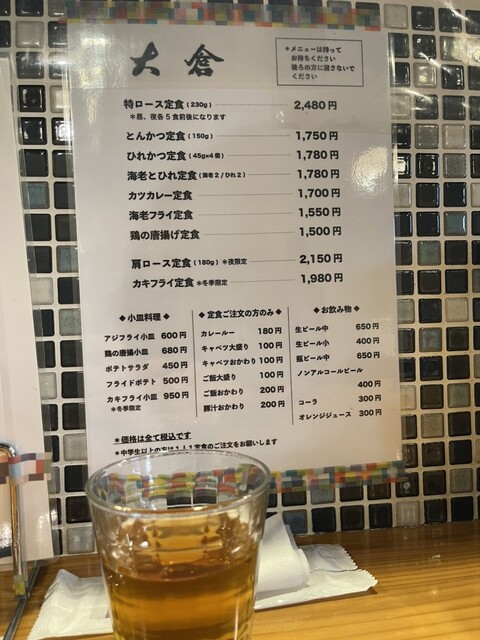 大倉
＊メニューは持って
お待ちください
後ろの方に渡さないで
ください
特ロース定食(230g) 2,480円
＊昼、夜各5食前後になります
とんかつ定食(150g) 1,750円
ひれかつ定食(45g×4個) 1,780円
海老とひれ定食(海老2/ひれ2) 1,780円
カツカレー定食 1,700円
海老フライ定食 1,550円
鶏の唐揚げ定食 1,500円
肩ロース定食(180g)＊夜限定 2,150円
カキフライ定食＊冬季限定 1,980円
◆小皿料理◆
アジフライ小皿 600円
鶏の唐揚小皿 680円
ポテトサラダ 450円
フライドポテト 500円
カキフライ小皿 950円
＊冬季限定
◆定食ご注文の方のみ◆
カレールー 180円
キャベツ大盛り 100円
キャベツおかわり 100円
ご飯大盛り 100円
ご飯おかわり 200円
豚汁おかわり 200円
◆お飲み物◆
生ビール中 650円
生ビール小 400円
瓶ビール中 650円
ノンアルコールビール
400円
コーラ 300円
オレンジジュース 300円
＊価格は全て税込です
＊中学生以上の方は1人1定食のご注文をお願いします